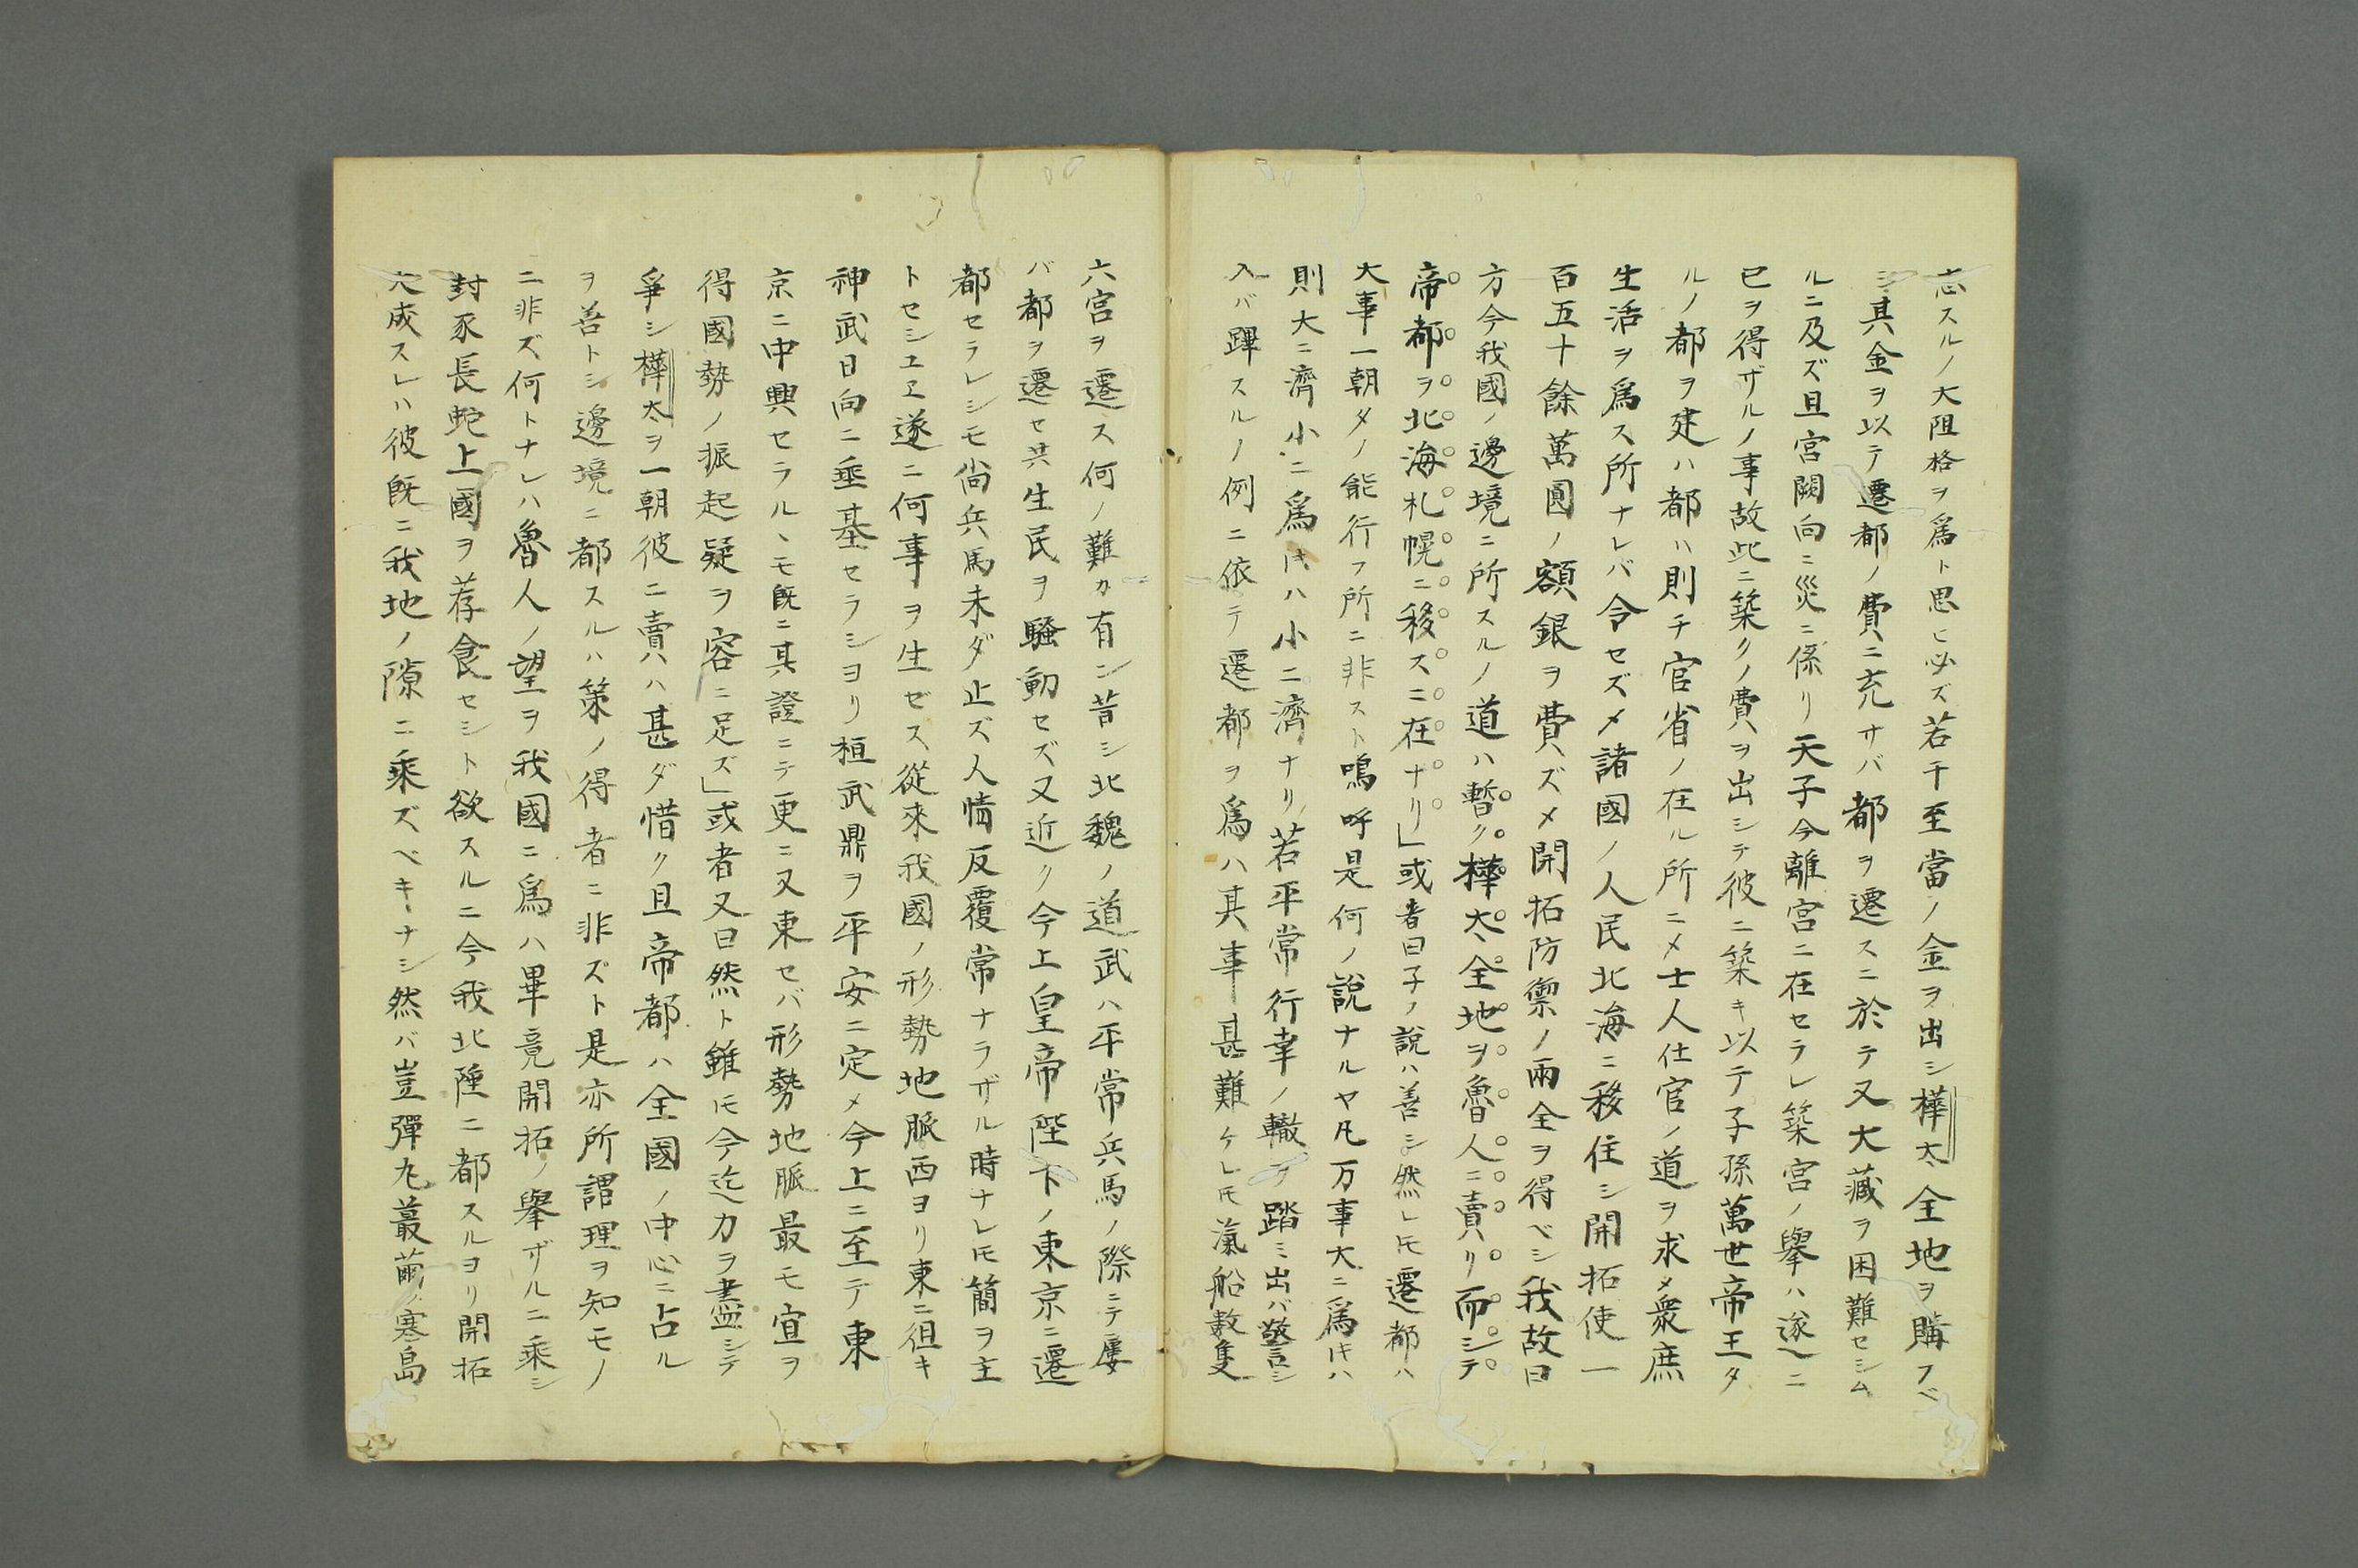 志スルノ大阻格ヲ爲ト思ヒ必ズ若干至當ノ金ヲ出シ樺太全地ヲ購フベ
シ其金ヲ以テ遷都ノ費ニ充サバ都ヲ遷スニ於テ又大藏ヲ困難セシム
ルニ及ズ且宮闕向ニ災ニ係リ天子今離宮ニ在セラレ築宮ノ擧ハ遂ニ
已ヲ得ザルノ事故此ニ築クノ費ヲ出シテ彼ニ築キ以テ子孫萬世帝王タ
ルノ都ヲ建ハ都ハ則チ官省ノ在ル所ニメ士人仕官ノ道ヲ求メ衆庶
生活ヲ爲ス所ナレバ令セズメ諸國ノ人民北海ニ移住シ開拓使一
百五十餘萬圓ノ額銀ヲ費ハズメ開拓防禦ノ兩全ヲ得ベシ我故曰
方今我國ノ邊境ニ所スルノ道ハ暫ク樺太全地ヲ魯人ニ賣リ而シテ
帝都ヲ北海札幌ニ移スニ在ナリ」或者曰子ノ說ハ善シ然レ𪜈遷都ハ
大事一朝夕ノ能行フ所ニ非スト鳴呼是何ノ說ナルヤ凡万事大ニ爲𪜈ハ
則大ニ濟小ニ爲𪜈ハ小ニ濟ナリ若平常行幸ノ轍ヲ踏ミ出バ警シ
入バ蹕スルノ例ニ依テ遷都ヲ爲ハ其事甚難ケレ𪜈滊船数隻
六宮ヲ遷ス何ノ難カ有ン昔シ北魏ノ道武ハ平常兵馬ノ際ニテ屢
バ都ヲ遷セ共生民ヲ騷動セズ又近ク今上皇帝陛下ノ東京ニ遷
都セラレシモ尚兵馬未ダ止ズ人情反覆常ナラザル時ナレ𪜈簡ヲ主
トセシユヱ遂ニ何事ヲ生ゼス從來我國ノ形勢地脈西ヨリ東ニ徂キ
神武日向ニ垂基セラシヨリ桓武鼎ヲ平安ニ定メ今上ニ至テ東
京ニ中興セラルヽモ既ニ其證ニテ更ニ又東セバ形勢地脈最モ宜ヲ
得國勢ノ振起疑ヲ容ニ足ズ」或者又曰然ト雖𪜈今迄力ヲ盡シテ
爭シ樺太ヲ一朝彼ニ賣ハ甚ダ惜ク且帝都ハ全國ノ中心ニ占ル
ヲ善トシ邊境ニ都スルハ策ノ得者ニ非ズト是亦所謂理ヲ知モノ
ニ非ズ何トナレハ魯人ノ望ヲ我國ニ爲ハ畢竟開拓ノ擧ザルニ乘シ
封豕長蛇上國ヲ荐食セシト欲スルニ今我北陲ニ都スルヨリ開拓
大成スレハ彼既ニ我地ノ隙ニ乘ズベキナシ然バ豈彈丸蕞薾ノ寒島